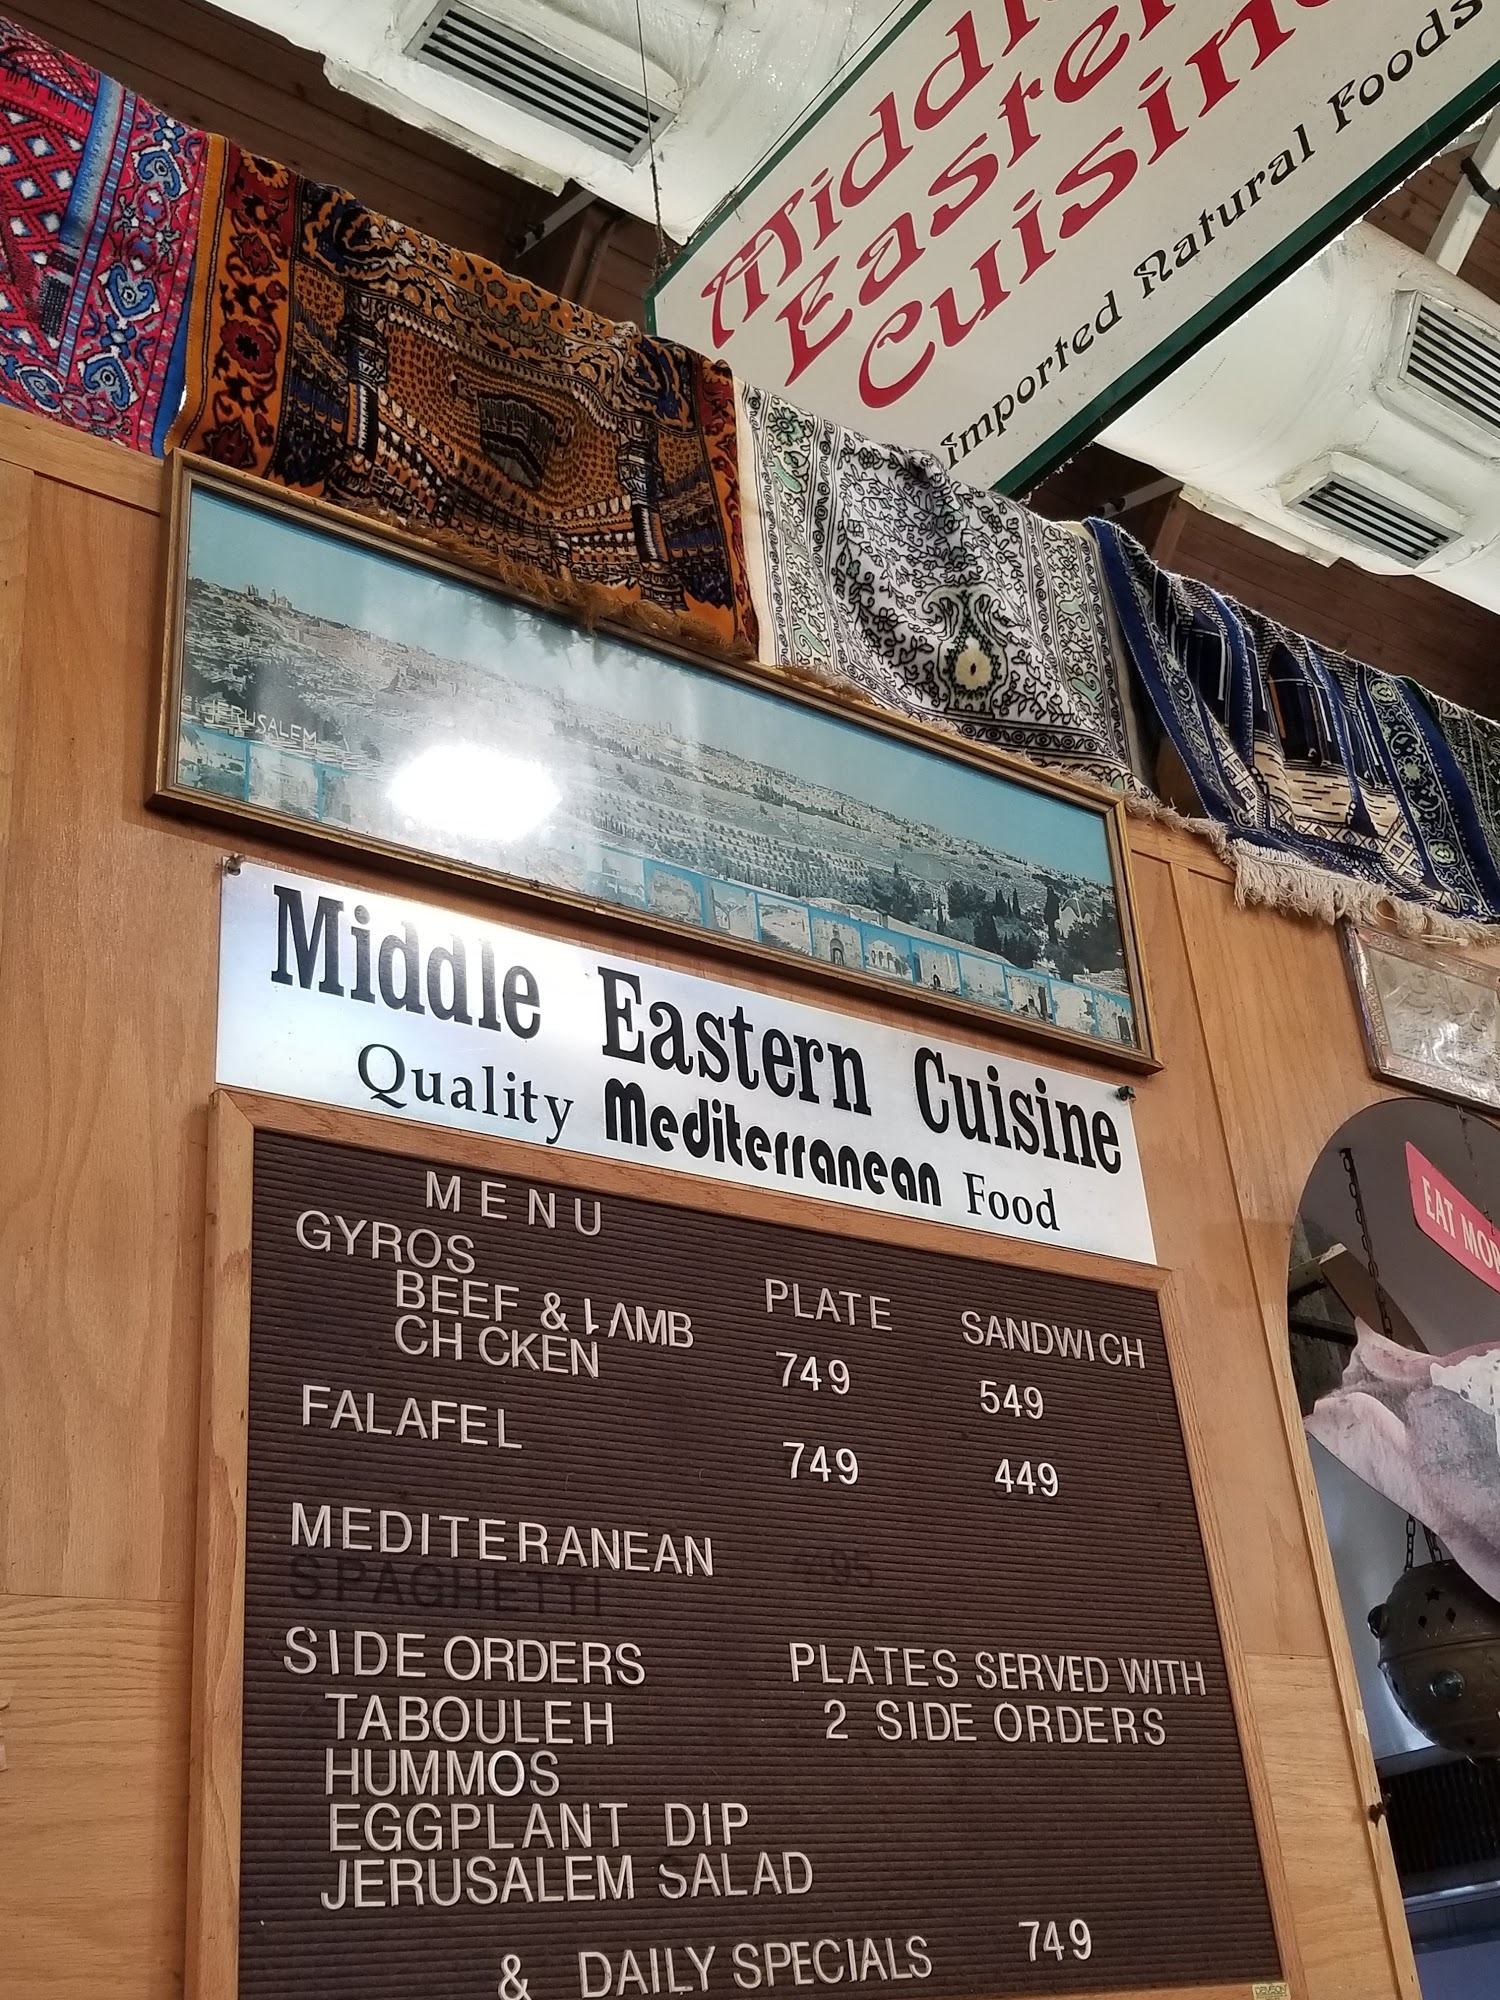 Middle
Eastern
Cuisine
Imported Natural Foods
JERUSALEM
Middle Eastern Cuisine
Quality Mediterranean Food
EAT MORE
MENU
GYROS
BEEF & LAMB
CH CKEN
PLATE SANDWICH
749 549
FALAFEL
749 449
MEDITERANEAN
SPAGHETTI 95
SIDE ORDERS
TABOULEH
HUMMOS
EGGPLANT DIP
JERUSALEM SALAD
PLATES SERVED WITH
2 SIDE ORDERS
& DAILY SPECIALS 749